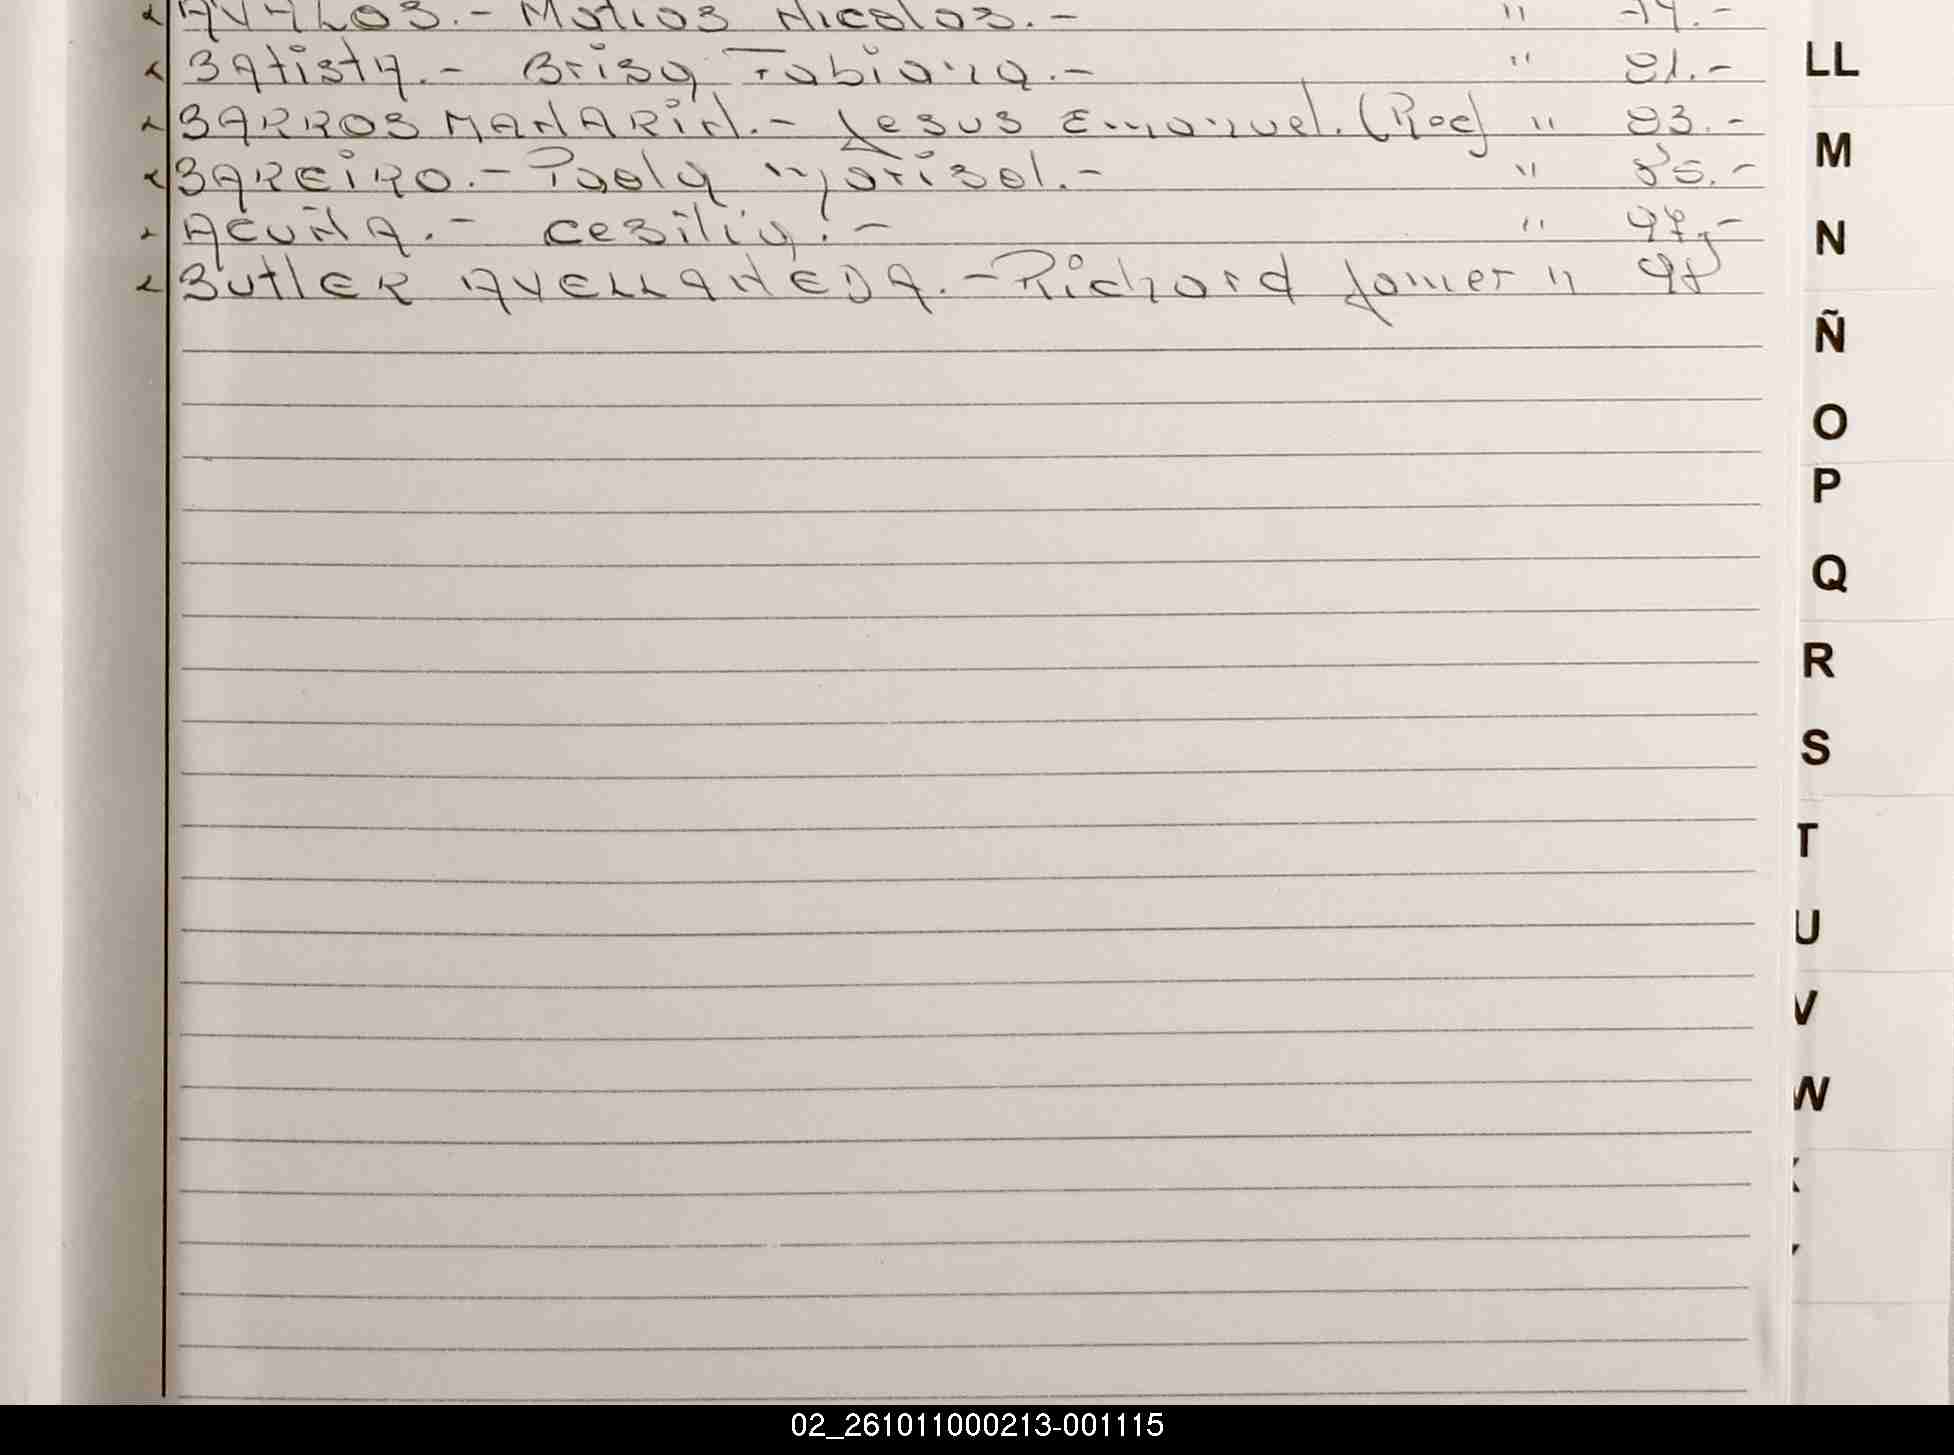 AVALOS.- Matias Nicolas.- " 74.-
BAtistA.- Brisa Fabiana.- " 81.-
BARROS MANARIN.- Jesus Emanuel. (Rec) " 83.-
BAREIRO.- Paola Marisol.- " 85.-
ACUÑA.- Cesilia.- " 97.-
ButlER AVELLANEDA.- Richard Jamer " 98
LL
M
N
Ñ
O
P
Q
R
S
T
U
V
W
02_261011000213-001115